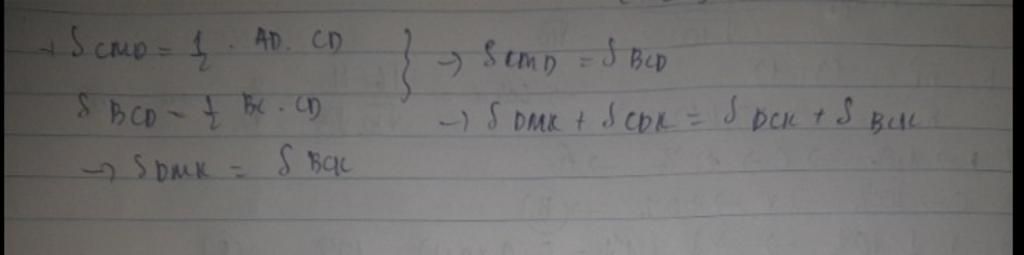 → S CMD = 1/2 . AD. CD } → S CMD = S BCD
S BCD = 1/2 BC . CD → S DMK + S CDK = S DCK + S BCK
→ S DMK = S BCK